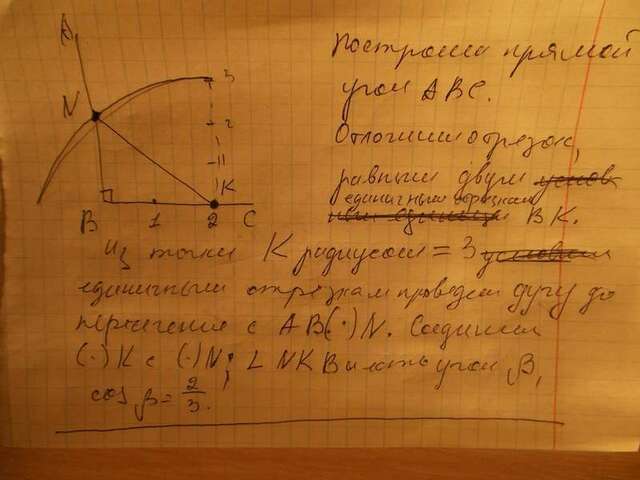 A
N
B
1
2
C
K
1
2
3
Построим прямой
угол ABC.
Отложим отрезок,
равный двум
единичным отрезкам
BK.
Из точки K радиусом = 3
единичным отрезкам проведем дугу до
пересечения с AB (·) N. Соединим
(·) K с (·) N; ∠ NKB и есть угол β,
cos β = 2/3.